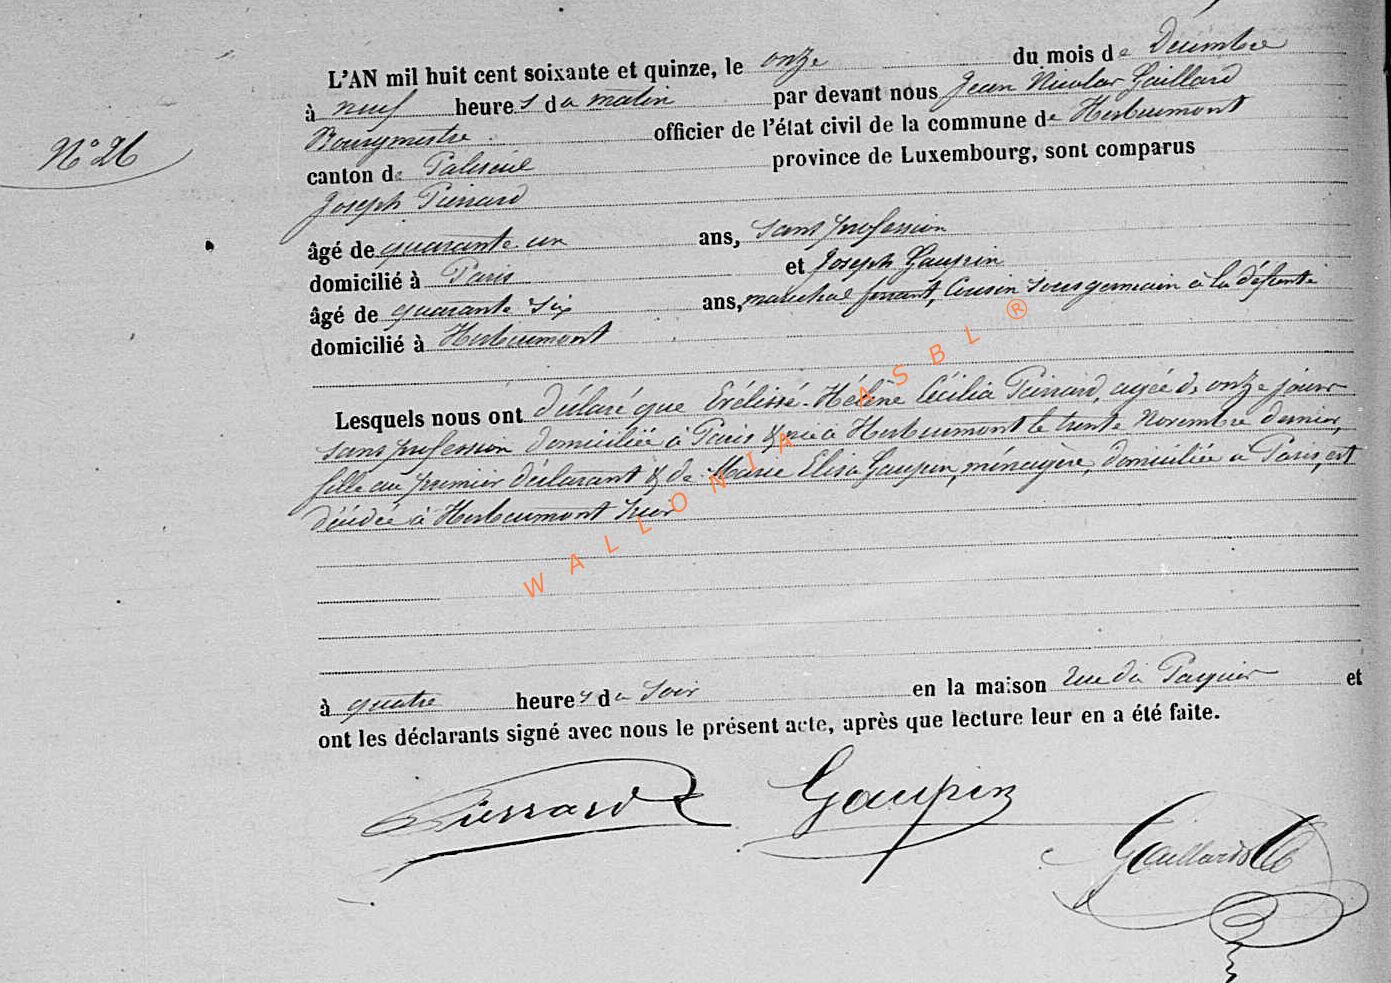 L'AN mil huit cent soixante et quinze, le onze du mois de Décembre
à neuf heures du matin par devant nous Jean Nicolas Gaillard
Bourgmestre officier de l'état civil de la commune de Herbeumont
N° 26
canton de Paliseul province de Luxembourg, sont comparus
Joseph Pierrard
âgé de quarante un ans, sans profession
domicilié à Paris et Joseph Gaupin
âgé de quarante six ans, maréchal ferrant, Cousin sousgermain à la défunte
domicilié à Herbeumont
Lesquels nous ont déclaré que Hélène Cécilia Pierrard, agée de onze jours
sans profession domiciliée à Paris & née à Herbeumont le trente Novembre dernier,
fille au premier déclarant & de Marie Elisa Gaupin, ménagère domiciliée à Paris, est
décédée à Herbeumont hier
à quatre heures du soir en la maison rue du Paquier et
ont les déclarants signé avec nous le présent acte, après que lecture leur en a été faite.
Pierrard Gaupin
Gaillard
WALLONIA ASBL ®